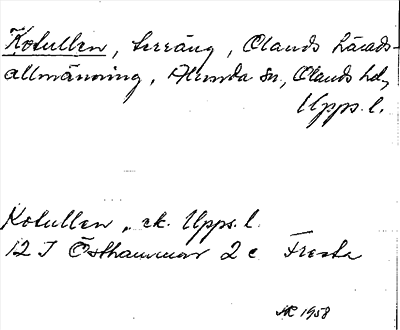 Kotullen, terräng, Olands härads-
allmänning, Alunda sn, Olands hd,
Upps. l.
Kotullen „ ek. Upps. l.
12 I Östhammar 2 c Tresta
1958